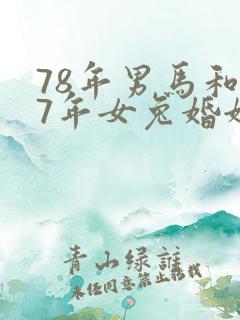 78年男馬和
7年女兔婚姻
青山绿誰
未经同意禁止转载